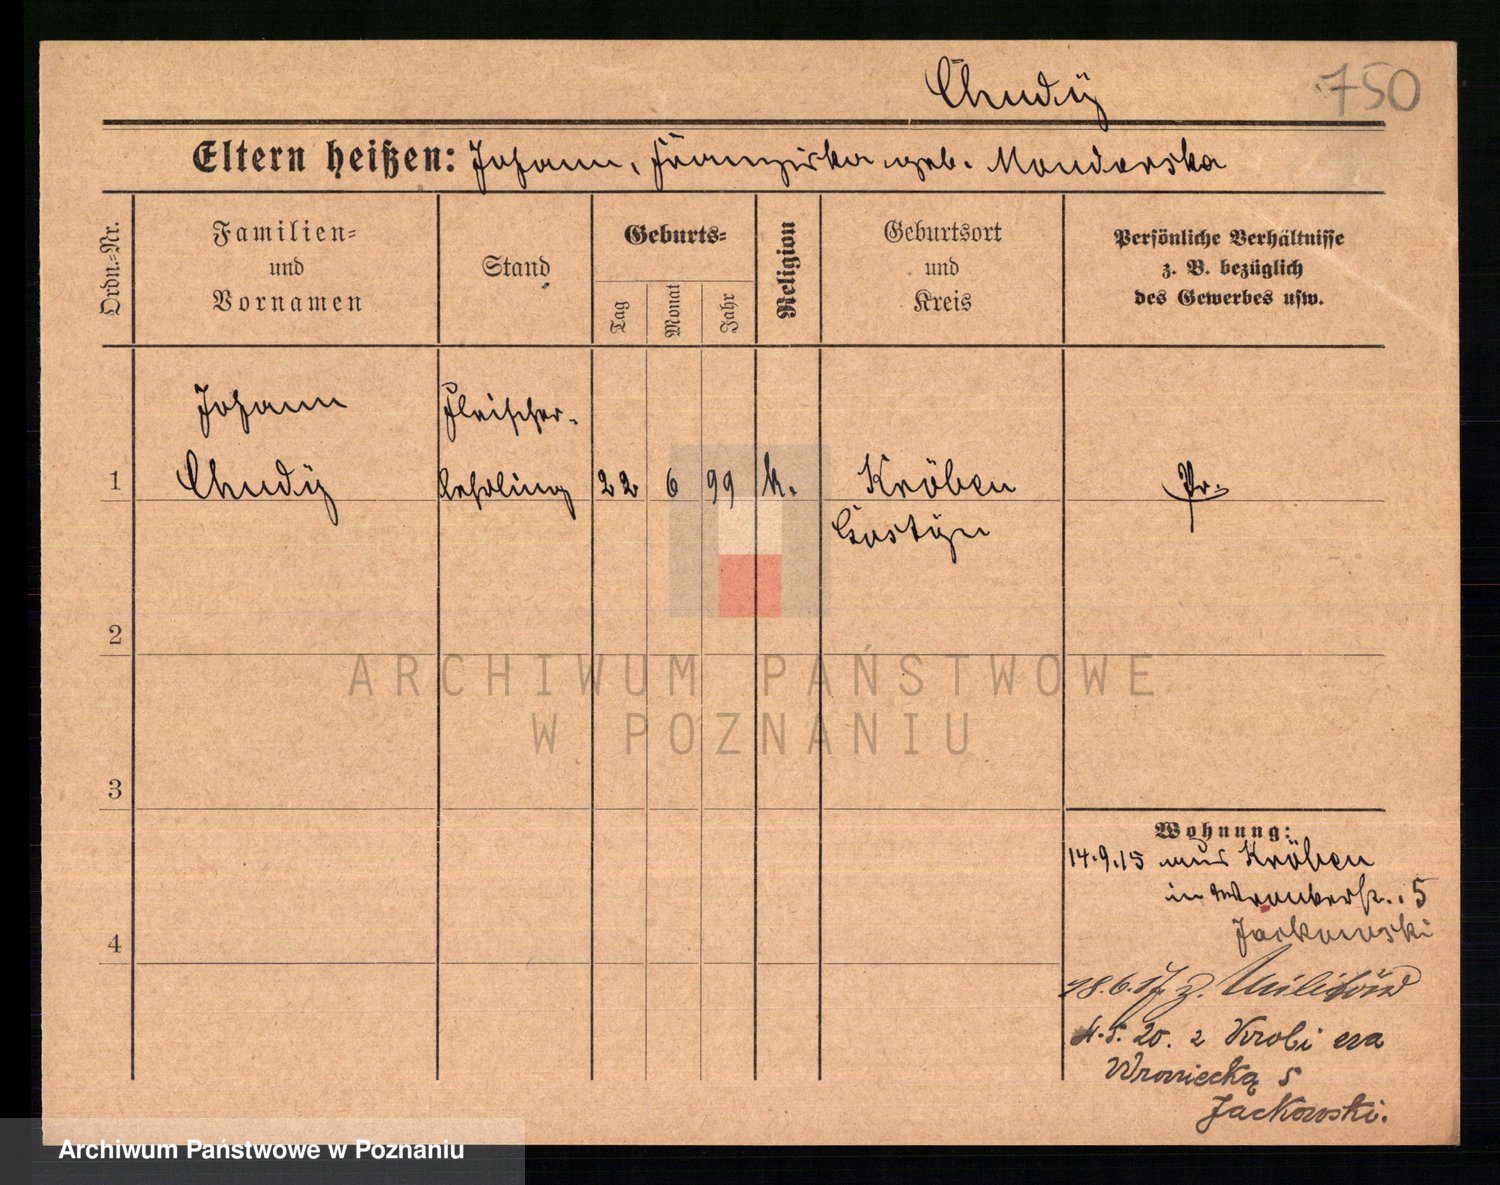 Chudÿ
750
Eltern heißen: Johann, Franziska geb. Mondarska
Ordn.-Nr.
Familien-
und
Vornamen
Stand
Geburts-
Tag
Monat
Jahr
Religion
Geburtsort
und
Kreis
Persönliche Verhältnisse
z. B. bezüglich
des Gewerbes usw.
Johann
Fleischer-
1 Chudÿ lehrling 22 6 99 k. Kröben Pr.
Gostÿn
2
3
4
Wohnung:
14.9.15 aus Kröben
in Wronkerstr. 5
Jackowski
18.6.17 z. Militär
4.5.20. z Krobi na
Wroniecką 5
Jackowski.
ARCHIWUM PAŃSTWOWE
W POZNANIU
Archiwum Państwowe w Poznaniu